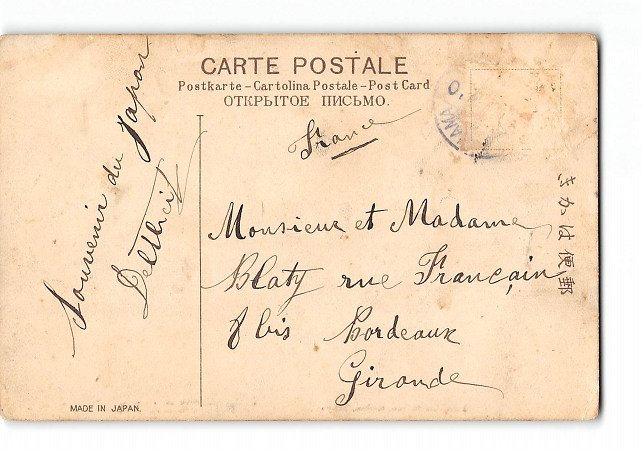 CARTE POSTALE
Postkarte – Cartolina Postale – Post Card
ОТКРЫТОЕ ПИСЬМО.
France
Souvenir du Japon
Monsieur et Madame
Blaty rue Françain
8 bis Bordeaux
Gironde
郵便はかき
MADE IN JAPAN.